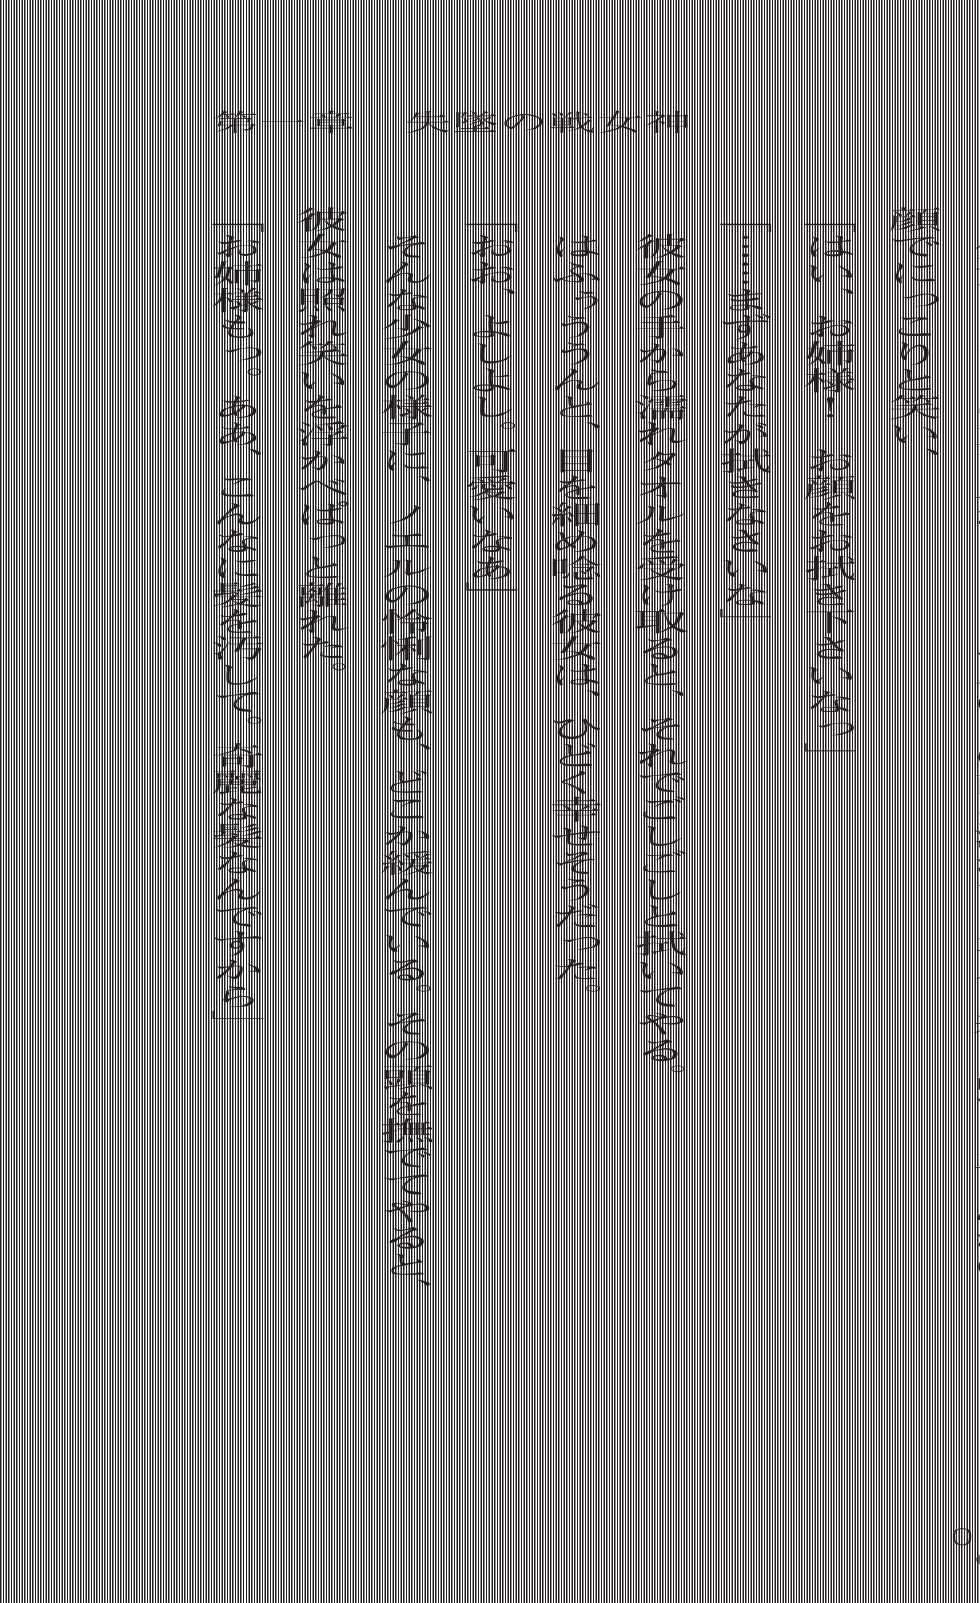 第一章　失墜の戦女神
顔でにっこりと笑い、
「はい、お姉様！　お顔をお拭き下さいなっ」
「……まずあなたが拭きなさいな」
彼女の手から濡れタオルを受け取ると、それでごしごしと拭いてやる。
はふぅううんと、目を細め唸る彼女は、ひどく幸せそうだった。
「おお、よしよし。可愛いなあ」
そんな少女の様子に、ノエルの怜悧な顔も、どこか緩んでいる。その頭を撫でてやると、
彼女は照れ笑いを浮かべ。ぱっと離れた。
「お姉様もっ。ああ、こんなに髪を汚して。奇麗な髪なんですから」